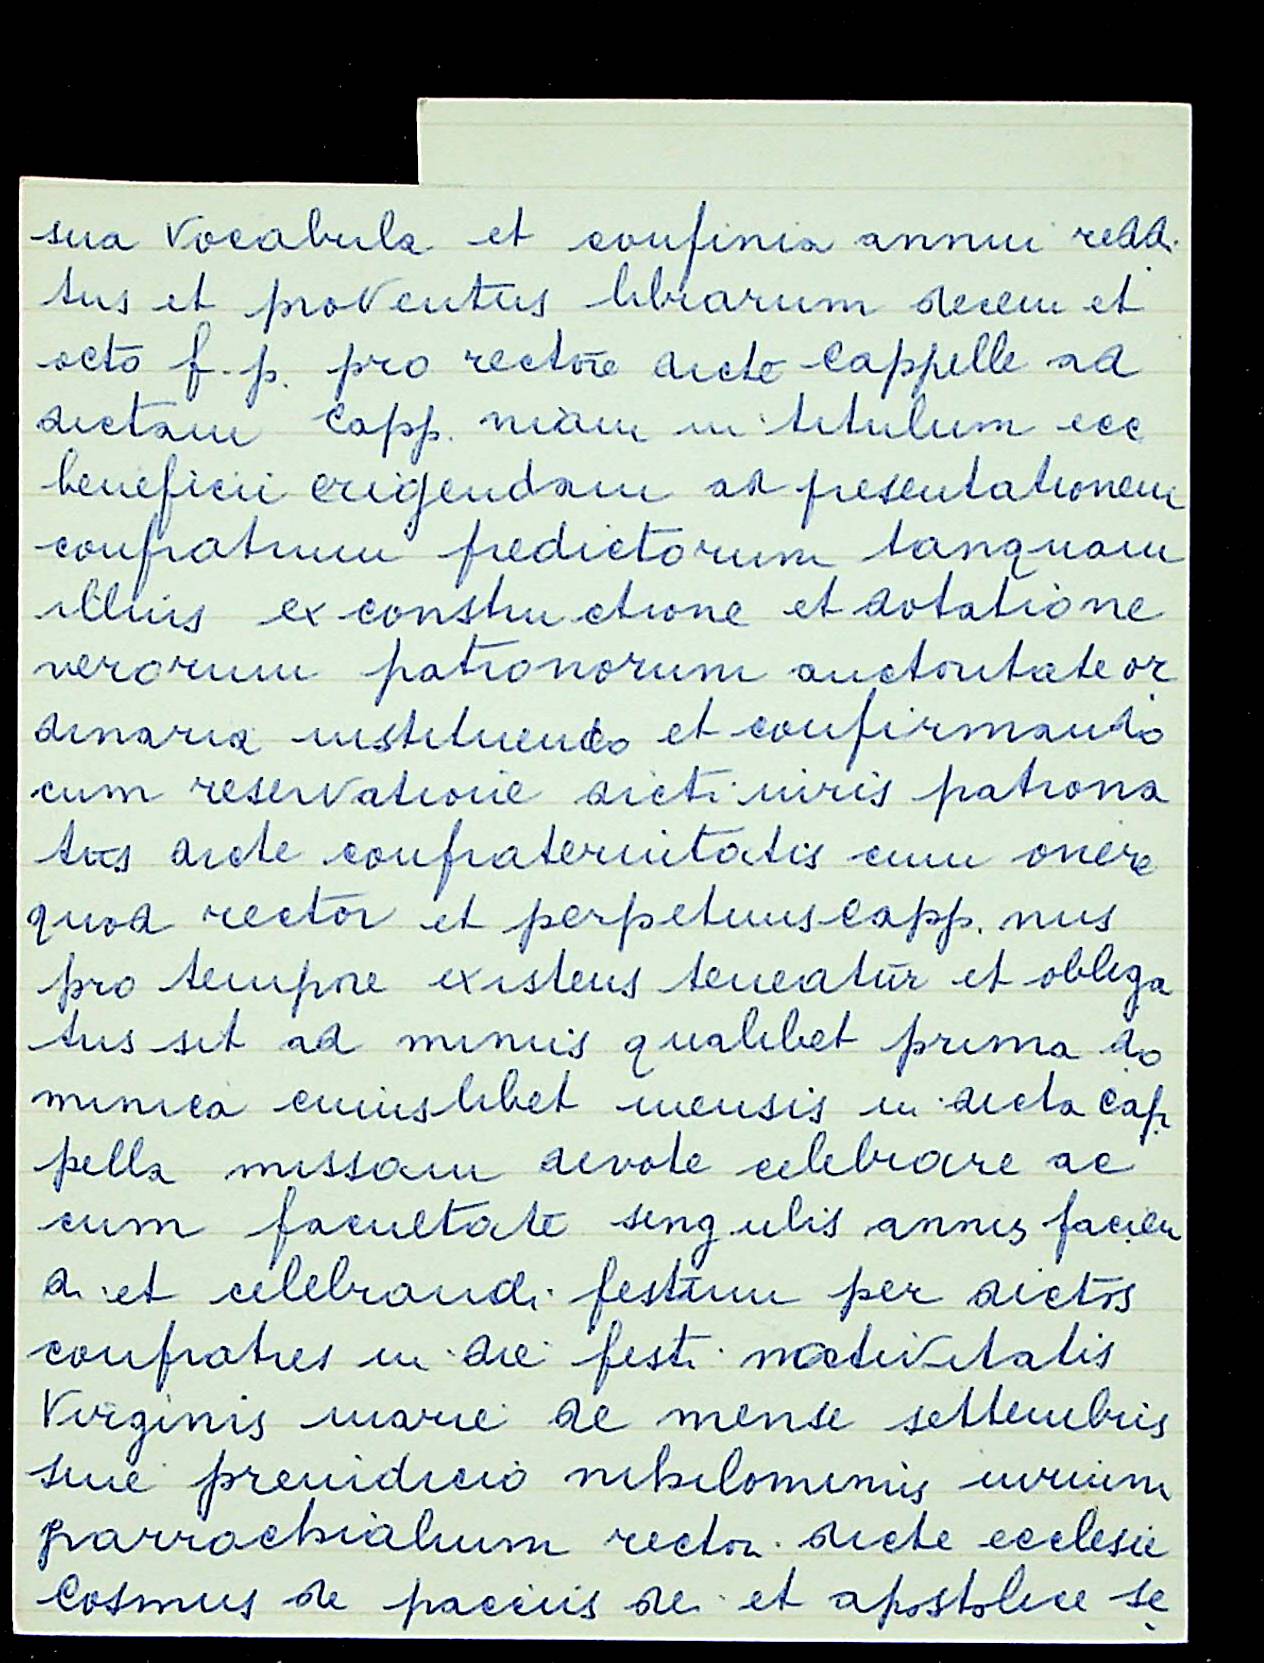 sua vocabula et confinia annui reddi
tus et proventus librarum decem et
octo f. p. pro rectore dicte Cappelle ad
dictam Capp. niam in titulum ecc
beneficii erigendam ad presentationem
confratrum predictorum tanquam
illius ex constructione et dotatione
verorum patronorum auctoritate or
dinaria instituendo et confirmando
cum reservatione dicti iuris patrona
tus dicte confraternitatis cum onere
quod rector et perpetuus Capp. nus
pro tempore existens teneatur et obliga
tus sit ad minus qualibet prima do
minica cuiuslibet mensis in dicta Cap
pella missam devote celebrare ac
cum facultate singulis annis facien
di et celebrandi festum per dictos
confratres in die festi nativitatis
Virginis marie de mense settembris
sine preiudicio nihilominus iurium
parrochialium rector. dicte ecclesie
Cosmus de pacciis dei et apostolice se